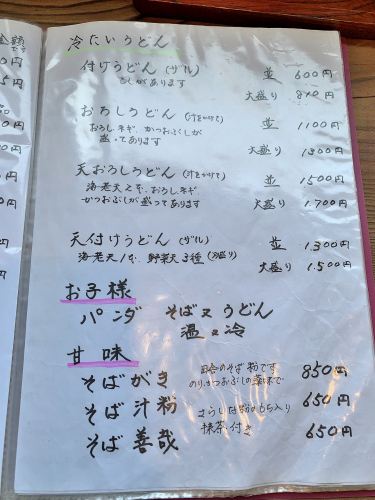 冷たいうどん
付けうどん (ザル) 並 600円
こしがあります
大盛り 800円
おろしうどん (汁をかけて) 並 1100円
おろし ネギ、かつおぶしが
盛ってあります
大盛り 1300円
天おろしうどん (汁をかけて) 並 1500円
海老天2本、おろしネギ、
かつおぶしが盛ってあります 大盛り 1,700円
天付けうどん (ザル) 並 1,300円
海老天1本、野菜天3種 (別盛り)
大盛り 1.500円
お子様
パンダ そば又うどん
温又冷
甘味
そばがき 田舎のそば粉です
のり、かつおぶしの薬味で 850円
そば汁粉 さらしな粉のもち入り 650円
そば善哉 抹茶付き 650円
金額
です